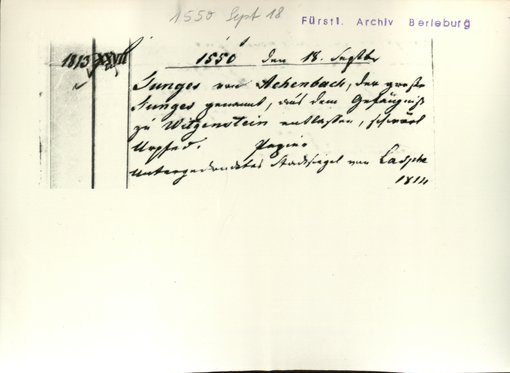 1550 Sept 18
Fürstl. Archiv Berleburg
1813 XXVII
1550 den 18. Septbr
Junges von Achenbach, der große
Junges genannt, aus dem Gefängniß
zu Witgenstein entlassen, schwört
Urpfed. Papier
Untergedrucktes Stadtsiegel von Laasphe
1814